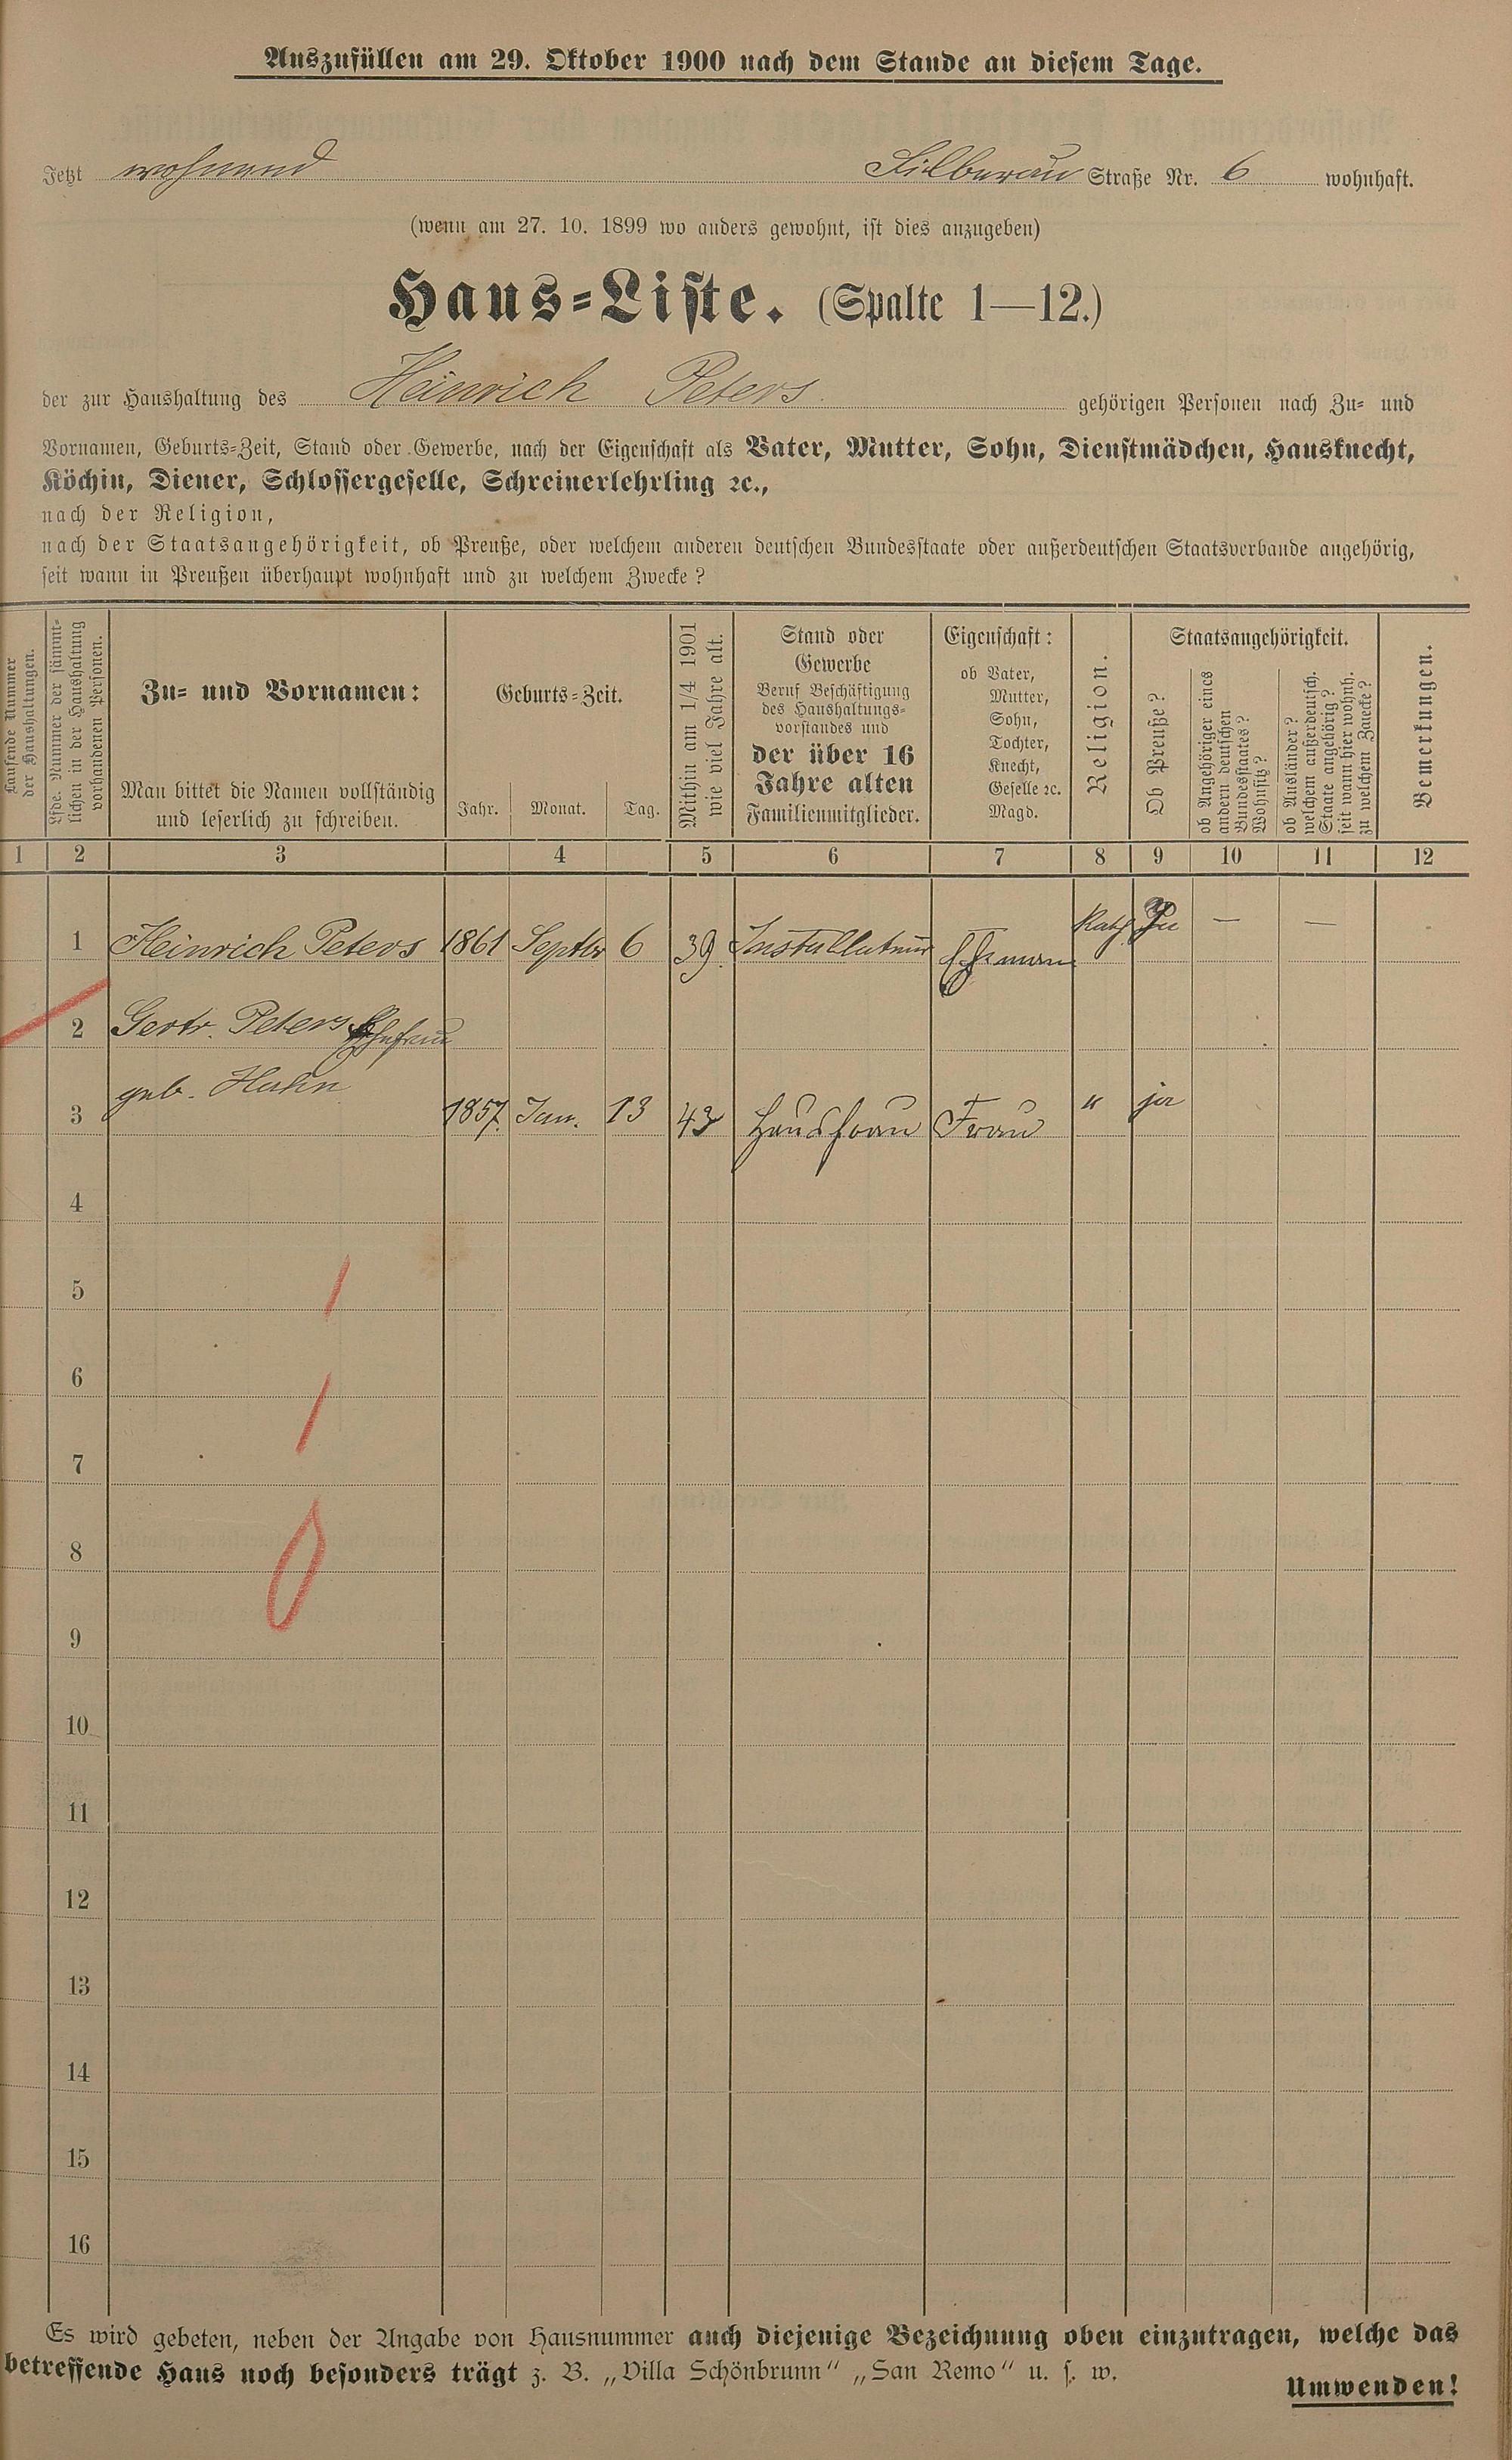 Auszufüllen am 29. Oktober 1900 nach dem Stande an diesem Tage.
Jetzt wohnend Silberau Straße Nr. 6 wohnhaft.
(wenn am 27. 10. 1899 wo anders gewohnt, ist dies anzugeben)
Haus=Liste. (Spalte 1—12.)
der zur Haushaltung des Heinrich Peters gehörigen Personen nach Zu= und
Vornamen, Geburts=Zeit, Stand oder Gewerbe, nach der Eigenschaft als Vater, Mutter, Sohn, Dienstmädchen, Hausknecht,
Köchin, Diener, Schlossergeselle, Schreinerlehrling ꝛc.,
nach der Religion,
nach der Staatsangehörigkeit, ob Preuße, oder welchem anderen deutschen Bundesstaate oder außerdeutschen Staatsverbande angehörig,
seit wann in Preußen überhaupt wohnhaft und zu welchem Zwecke?
Laufende Nummer
der Haushaltungen.
Lfde. Nummer der sämmt=
lichen in der Haushaltung
vorhandenen Personen.
Zu= und Vornamen:
Man bittet die Namen vollständig
und leserlich zu schreiben.
Geburts=Zeit.
Jahr. Monat. Tag.
Mithin am 1/4 1901
wie viel Jahre alt.
Stand oder
Gewerbe
Beruf Beschäftigung
des Haushaltungs=
vorstandes und
der über 16
Jahre alten
Familienmitglieder.
Eigenschaft:
ob Vater,
Mutter,
Sohn,
Tochter,
Knecht,
Geselle ꝛc.
Magd.
Religion.
Staatsangehörigkeit.
Ob Preuße?
ob Angehöriger eines
andern deutschen
Bundesstaates?
Wohnsitz?
ob Ausländer?
welchem außerdeutsch.
Staate angehörig?
seit wann hier wohnh.
zu welchem Zwecke?
Bemerkungen.
1 2 3 4 5 6 7 8 9 10 11 12
1 Heinrich Peters 1861 Septbr 6 39 Installateur Ehemann Kath. — —
2 Gertr. Peters Ehefrau
3 geb. Hahn 1857. Jan. 13 43 Hausfrau Frau " ja
4
5
6
7
8
9
10
11
12
13
14
15
16
Es wird gebeten, neben der Angabe von Hausnummer auch diejenige Bezeichnung oben einzutragen, welche das
betreffende Haus noch besonders trägt z. B. „Villa Schönbrunn" „San Remo" u. s. w.
Umwenden!